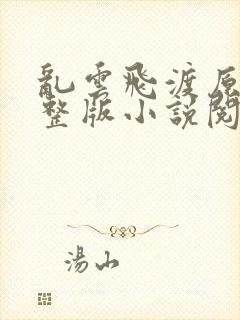 亂雲飛渡原
整版小說閱
湯山